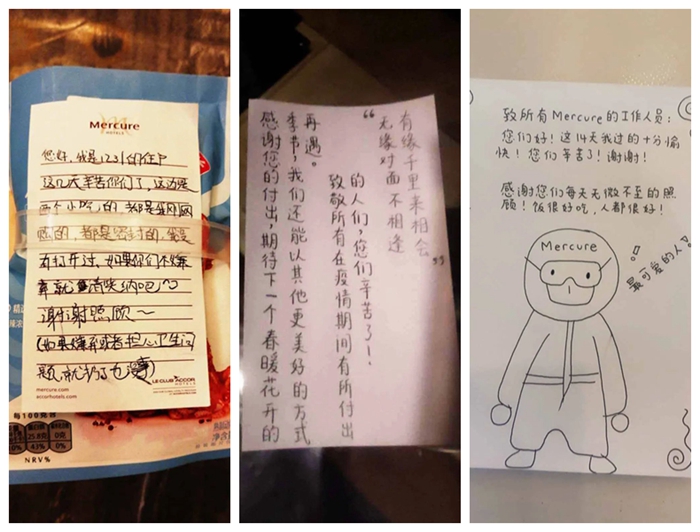 Mercure
HOTELS
您好，我是1231的住户
这几天辛苦你们了，这边是
两个小吃的，都是我刚网
购的，都是密封的，没
有打开过，如果你们不嫌
弃就 纳吧～
谢谢照顾～
(如果嫌弃或者担心卫生问
题，就扔了也
mercure.com
accorhotels.com
LE CLUB ACCOR
HOTELS
每100克含
25.8克
0克
43%
0%
NRV%
感谢您的付出，期待下一个春暖花开的
季节，我们还能以其他更美好的方式
再遇。
致敬所有在疫情期间有所付出
的人们，您们辛苦了！
“无缘对面不相逢
有缘千里来相会”
致所有Mercure的工作人员：
您们好！这14天我过的十分愉
快！您们辛苦了！谢谢！
感谢您们每天无微不至的照
顾！饭很好吃，人都很好！
Mercure
最可爱的人！